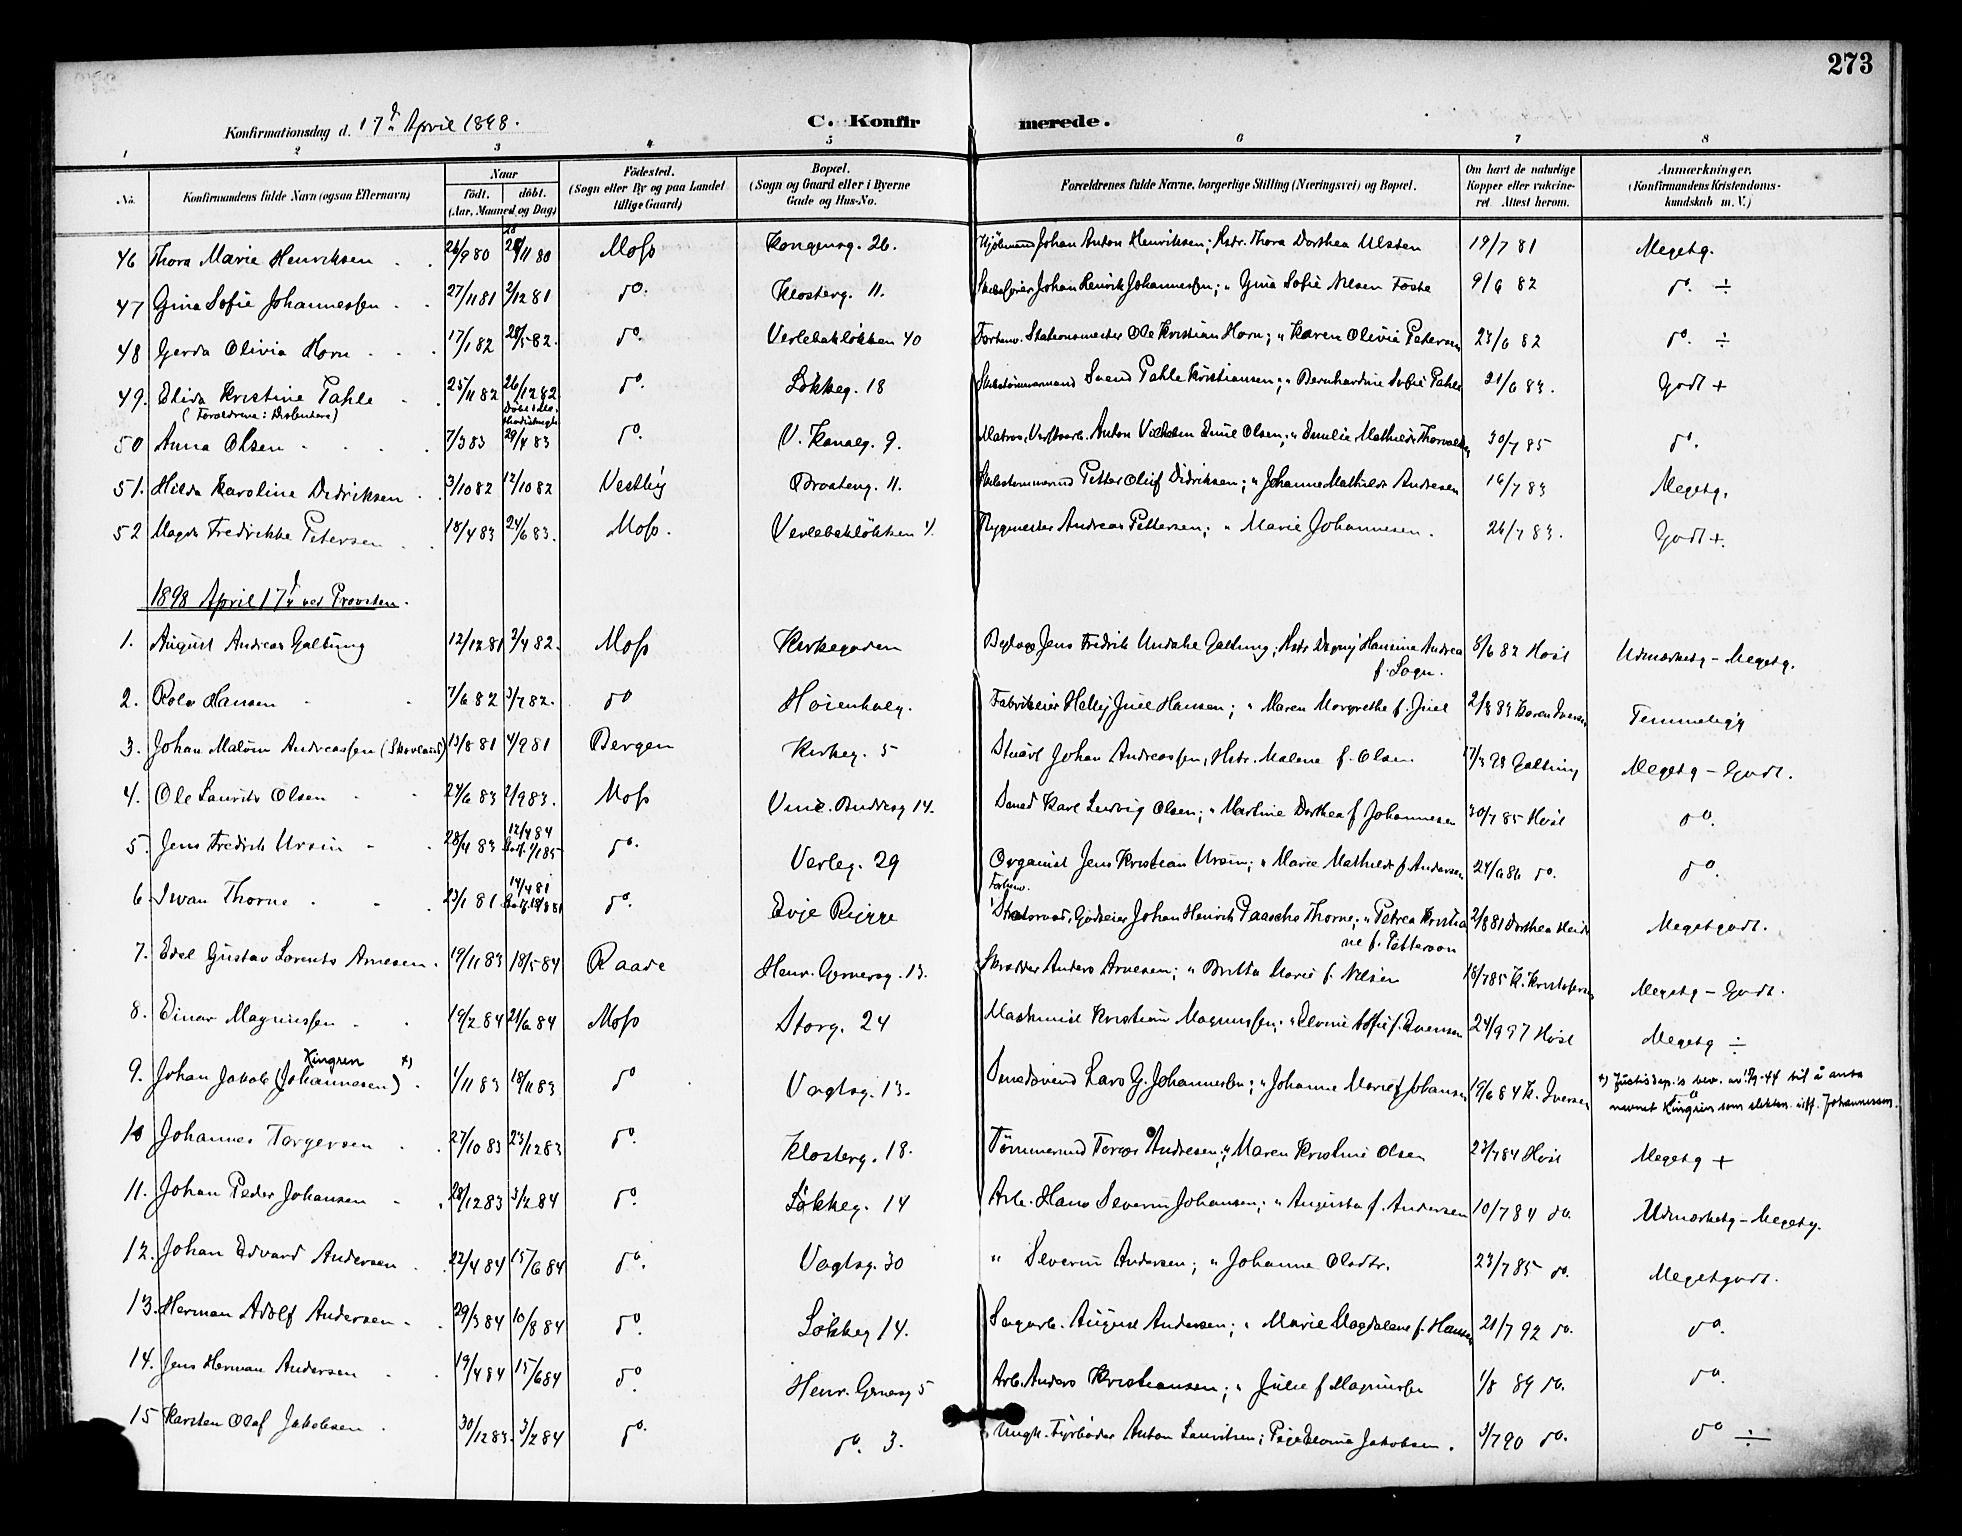 273
Konfirmationsdag d. 17de April 1898.
C. Konfirmerede.
1 2 3 4 5 6 7 8
No. Konfirmandens fulde Navn (ogsaa Efternavn) Naar født. døbt. (Aar, Maaned og Dag) Fødested. (Sogn eller By og paa Landet tillige Gaard) Bopæl. (Sogn og Gaard eller i Byerne Gade og Hus-No. Forældrenes fulde Navne, borgerlige Stilling (Næringsvei) og Bopæl. Om havt de naturlige Kopper eller vakcineret. Attest herom. Anmærkninger. (Konfirmandens Kristendomskundskab m. V.)
46 Thora Marie Henriksen 26/9 80 28/11 80 Moss Kongensg. 26. Kjøbmand Johan Anton Henriksen; Hstr. Thora Dorthea Ulsten 19/7 81 Megetg.
47 Gina Sofie Johannessen 27/11 81 2/12 81 do. Klosterg. 11. Johan Henrik Johannessen; " Gina Sofie Nilsen Foste 9/6 82 do. ÷
48 Gerda Olivia Horn 17/1 82 28/5 82. do. Verlebakløkken 40 Forhenv. Stationsmester Ole Kristian Horn; " Karen Olivia Petersen 23/6 82 do. ÷
49. Elida Kristine Pahle 25/11 82 26/12 82 do. Løkkeg. 18 Skibstømmermand Svend Pahle Kristiansen; " Bernhardine Sofie Pahle 21/6 83. Godt +
(Forældrene: Disentere)
50 Anna Olsen 7/3 83 29/4 83 do. V. Kanalg. 9. Matros, Anton Vilhelm Emil Olsen; " Emilie Mathilde Thorvaldsen 30/7 85 do.
51. Hilda Karoline Didriksen 3/10 82 12/10 82 Vestby Brosteng. 11. Petter Oluf Didriksen; " Johanne Mathilde Andresen 16/7 83 Megetg.
52 Magda Fredrikke Petersen 18/4 83 24/6 83. Moss. Verlebakløkken Rygmester Andreas Pettersen; " Marie Johannesen. 26/7 83. Godt +.
1898 April 17de ved Provsten.
1. August Andreas Galtung 12/12 81 2/4 82. Moss Kirkegaden Byfoged Jens Fredrik Undahl Galtung, Hstr Dagny Hansine Andrea f. Sogn. 8/6 82 Høst Udmærketg - Megetg.
2. Rolv Hansen 7/6 82 3/7 82. do Høienholg. Fabrikeier Helly Juel Hansen; " Maren Margrethe f. Juel 2/8 83 Karen Iversen Temmeligg
3. Johan Maløm Andreassen (Skovland) 13/8 81 4/9 81 Bergen Kirkeg. 5 Stuart Johan Andreassen, Hstr. Malene f. Olsen Galtung Megetg - Godt.
4. Ole Laurits Olsen 24/6 83 2/9 83. Moss Vinc. Buddesg 14. Smed Karl Ludvig Olsen; " Martine Dorthea f Johannesen 30/7 85 Høst do.
5. Jens Fredrik Ursin 28/11 83 12/4 84 do. Verleg. 29 Organist Jens Kristian Ursin; " Marie Mathilde f. Andersen 24/6 86 do. do.
6 Iwan Thorne 23/1 81. 14/4 81 do. Evje Rygge Forhenv. Statsraad, Godseier Johan Henrich Paasche Thorne; " Petrea Kristiane f. Petterson 2/8 81 Dorthea Heide Megetgodt.
7. Edel Gustav Lorents Arnesen. 19/11 83 18/5 84 Raade Henr. Gernersg. 13. Skrædder Anders Arnesen; " Britta Marie f. Nilsen 18/7 85 K. Kristofersen Megetg - Godt.
8. Einar Magnussen 19/2 84 21/6 84 Moss Storg. 24 Maskinist Kristian Magnussen; " Elvine Sofie f. Evensen 24/9 97 Høst Megetg ÷
9. Johan Jakob (Johannesen) Kingren x) 1/11 83 18/11 83 do Vogtsg. 13. Smedsvend Lars G. Johannessen; " Johanne Marie f Johansen 19/6 84 K. Iversen x) Justisdep.'s bev. av -44 til å anta
navnet Kingrén som slektsn. istf. Johannessen.
10 Johannes Torgersen 27/10 83 23/12 83 do. Klosterg. 18. Tømmermd Andresen; " Maren Kristine Olsen 23/7 84 Høst Megetg +
11. Johan Peder Johansen 28/12 83 3/2 84 do. Løkkeg. 14 Arb. Hans Severin Johansen; " Augusta f. Andersen 10/7 84 do. Udmærketg - Megetg.
12. Johan Edvard Andersen 22/4 84 15/6 84 do. Vogtsg. 30 " Severin Andersen; " Johanne Olsdtr. 23/7 85 do. Megetgodt.
13. Herman Adolf Andersen 29/3 84 10/8 84 do. Løkkeg 14. Sagarb. August Andersen; " Marie Magdalene f. Hansen 21/7 92 do. do.
14. Jens Herman Andersen 19/4 84 15/6 84 do. Henr. Gernersg 5 Arb. Anders Kristiansen; " Julie f Magnussen 1/8 89 do. do.
15 Karsten Olaf Jakobsen 30/12 83. 3/2 84 do. do. 3. Ungk. Fyrbøder Anton Lauritsen; Pige Elvina Jakobsen. 3/7 90 do. do ÷